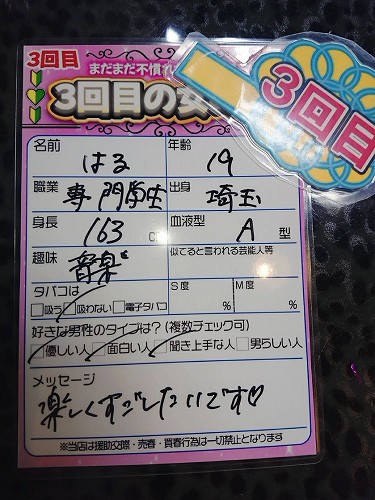 3回目
まだまだ不慣れ
3回目の女
3回目
名前 はる 年齢 19
職業 専門学生 出身 埼玉
身長 163 血液型 A 型
趣味 音楽 似てると言われる芸能人等
タバコは S度 M度
□吸う □吸わない □電子タバコ % %
好きな男性のタイプは?(複数チェック可)
□優しい人 □面白い人 □聞き上手な人 □男らしい人
メッセージ
楽しくすごしたいです♡
※当店は援助交際・売春・買春行為は一切禁止となります